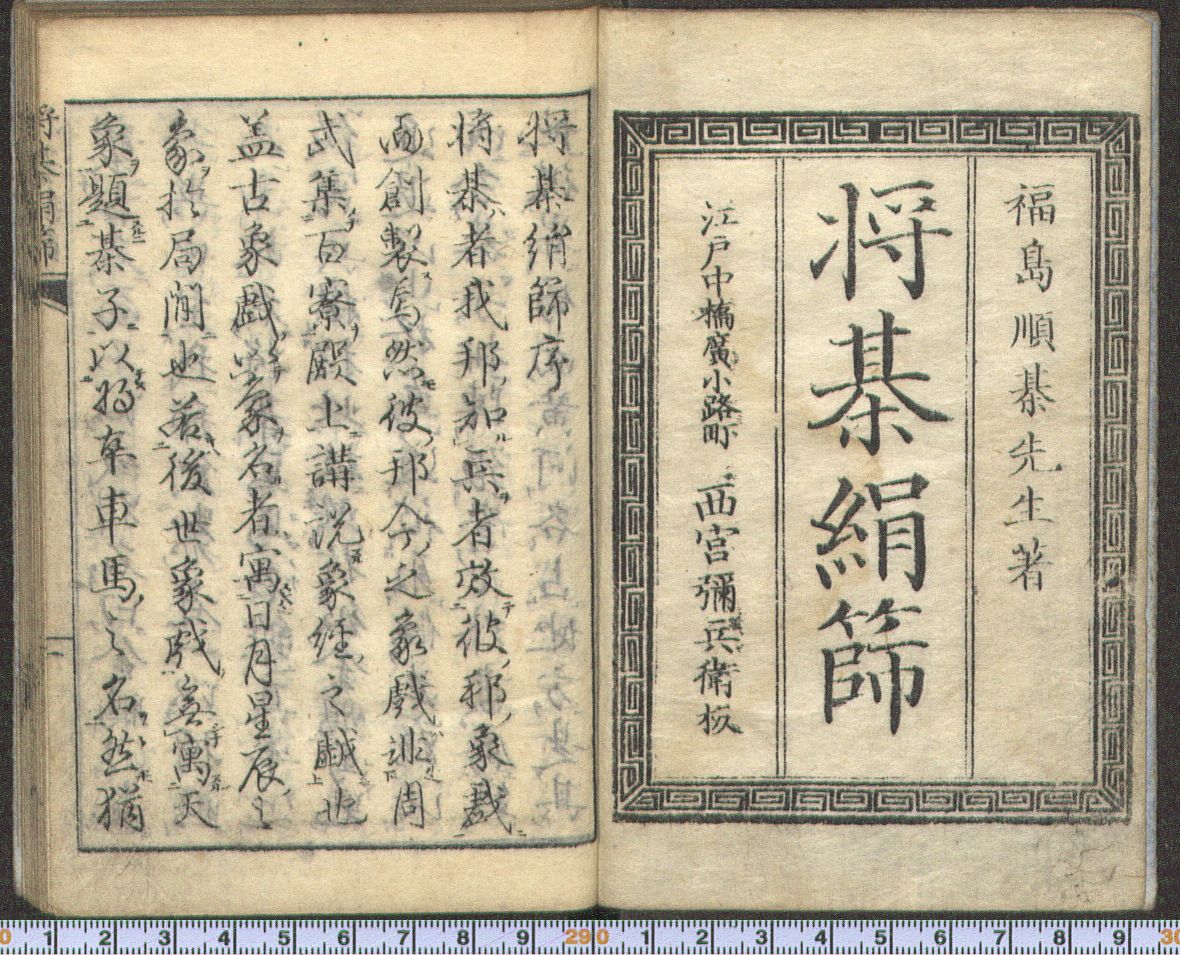 福島順棊先生著
将棊絹篩
江戸中橋廣小路町 西宮彌兵衛板
将棊絹篩序
将棊者我邦知兵者效彼邦象戯
而創製焉然彼邦今之象戯非周
武集百寮殿上講説象経之戯也
盖古象戯以象名者寓日月星辰之
象於局間也若後世象戯無寓天
象題棊子以将卒車馬之名然猶
将棊絹篩
0 1 2 3 4 5 6 7 8 9 29 0 1 2 3 4 5 6 7 8 9 30